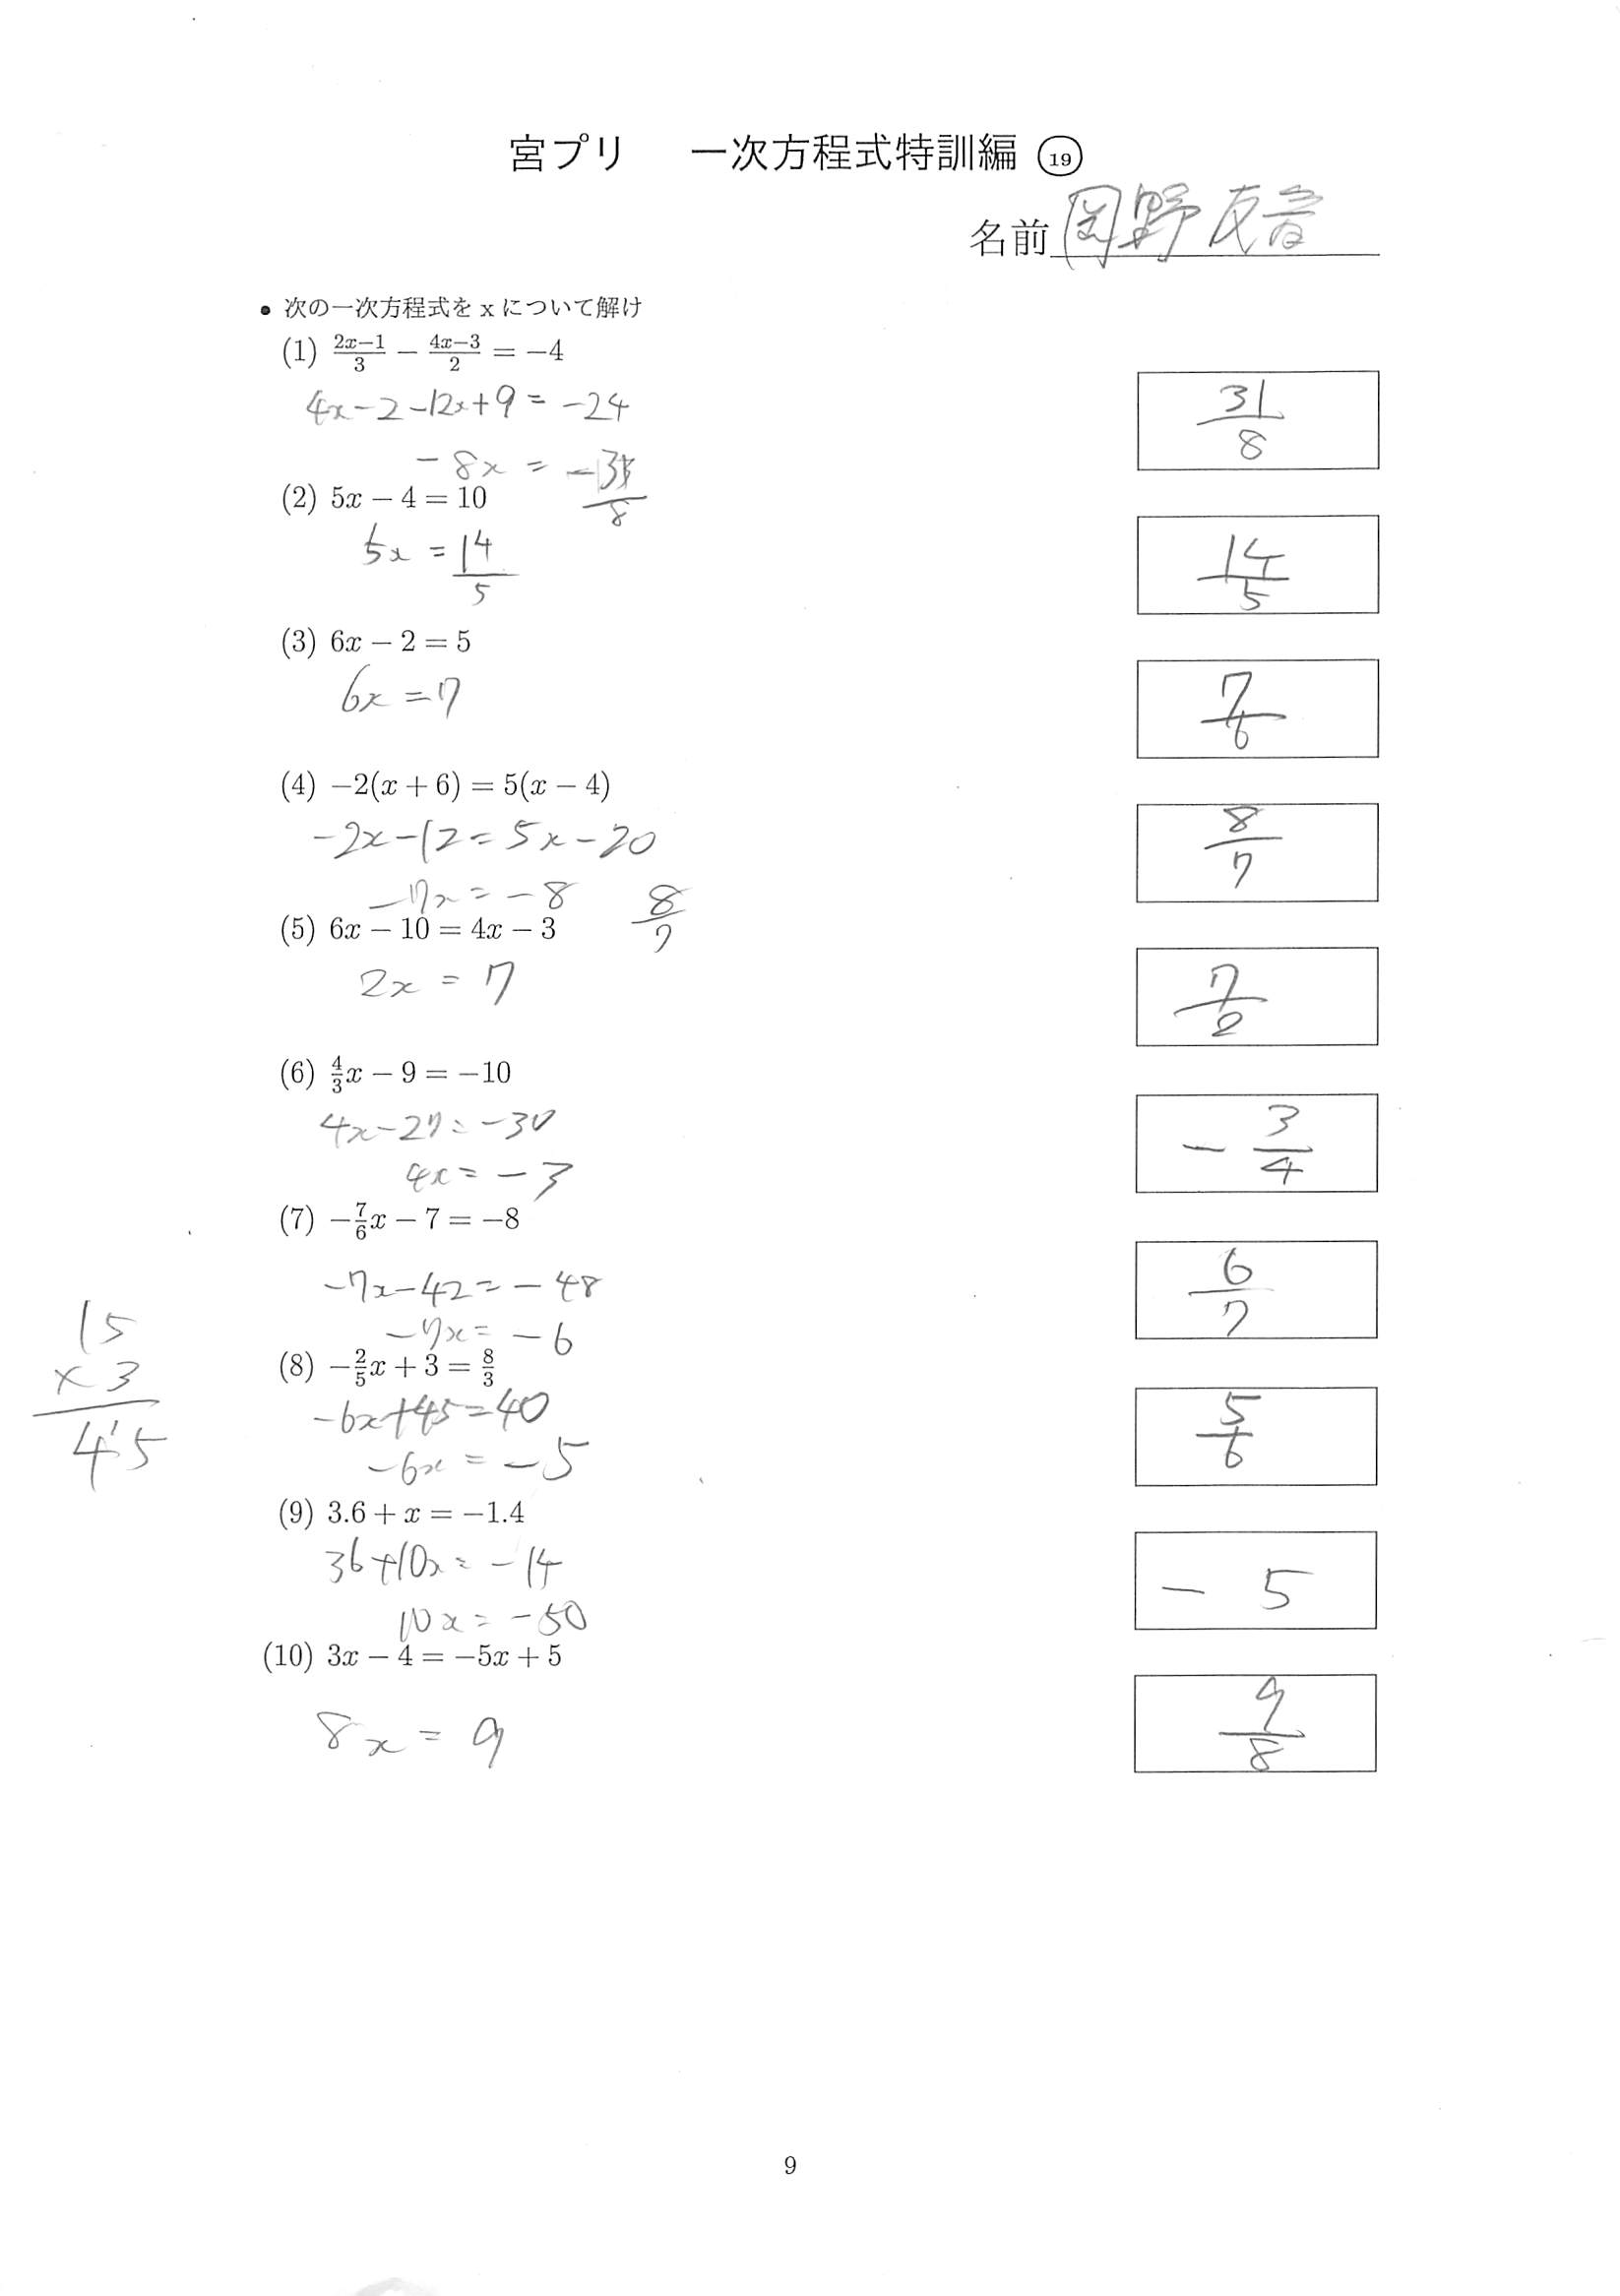 宮プリ　一次方程式特訓編 ⑲
名前 岡野友音
• 次の一次方程式を x について解け
(1) \frac{2x-1}{3} - \frac{4x-3}{2} = -4
4x-2-12x+9=-24
\frac{31}{8}
-8x = -31
8
(2) 5x - 4 = 10
5x = 14
5
\frac{14}{5}
(3) 6x - 2 = 5
6x = 7
\frac{7}{6}
(4) -2(x + 6) = 5(x - 4)
-2x-12=5x-20
\frac{8}{7}
-7x=-8 \frac{8}{7}
(5) 6x - 10 = 4x - 3
2x = 7
\frac{7}{2}
(6) \frac{4}{3}x - 9 = -10
4x-27=-30
-\frac{3}{4}
4x=-3
(7) -\frac{7}{6}x - 7 = -8
-7x-42=-48
\frac{6}{7}
-7x=-6
(8) -\frac{2}{5}x + 3 = \frac{8}{3}
15
×3
4'5
-6x+45=40
\frac{5}{6}
-6x=-5
(9) 3.6 + x = -1.4
36+10x=-14
-5
10x=-50
(10) 3x - 4 = -5x + 5
8x = 9
\frac{9}{8}
9